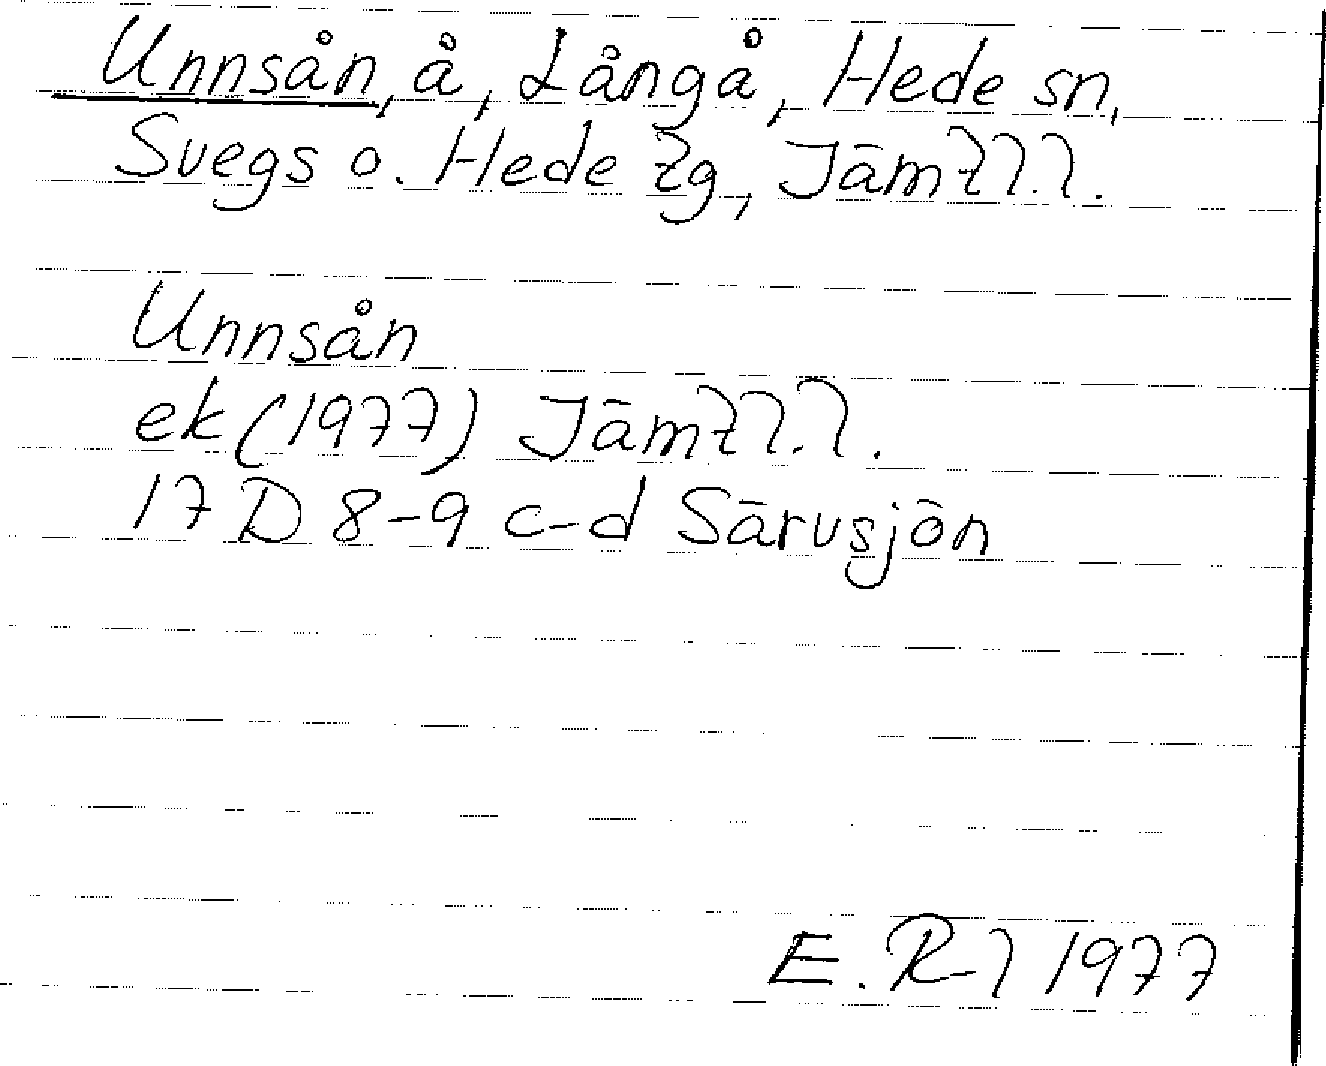 Unnsån, å, Långå, Hede sn,
Svegs o. Hede tg, Jämtl.l.
Unnsån
ek (1977) Jämtl.l.
17 D 8-9 c-d Särvsjön
E. R-l 1977